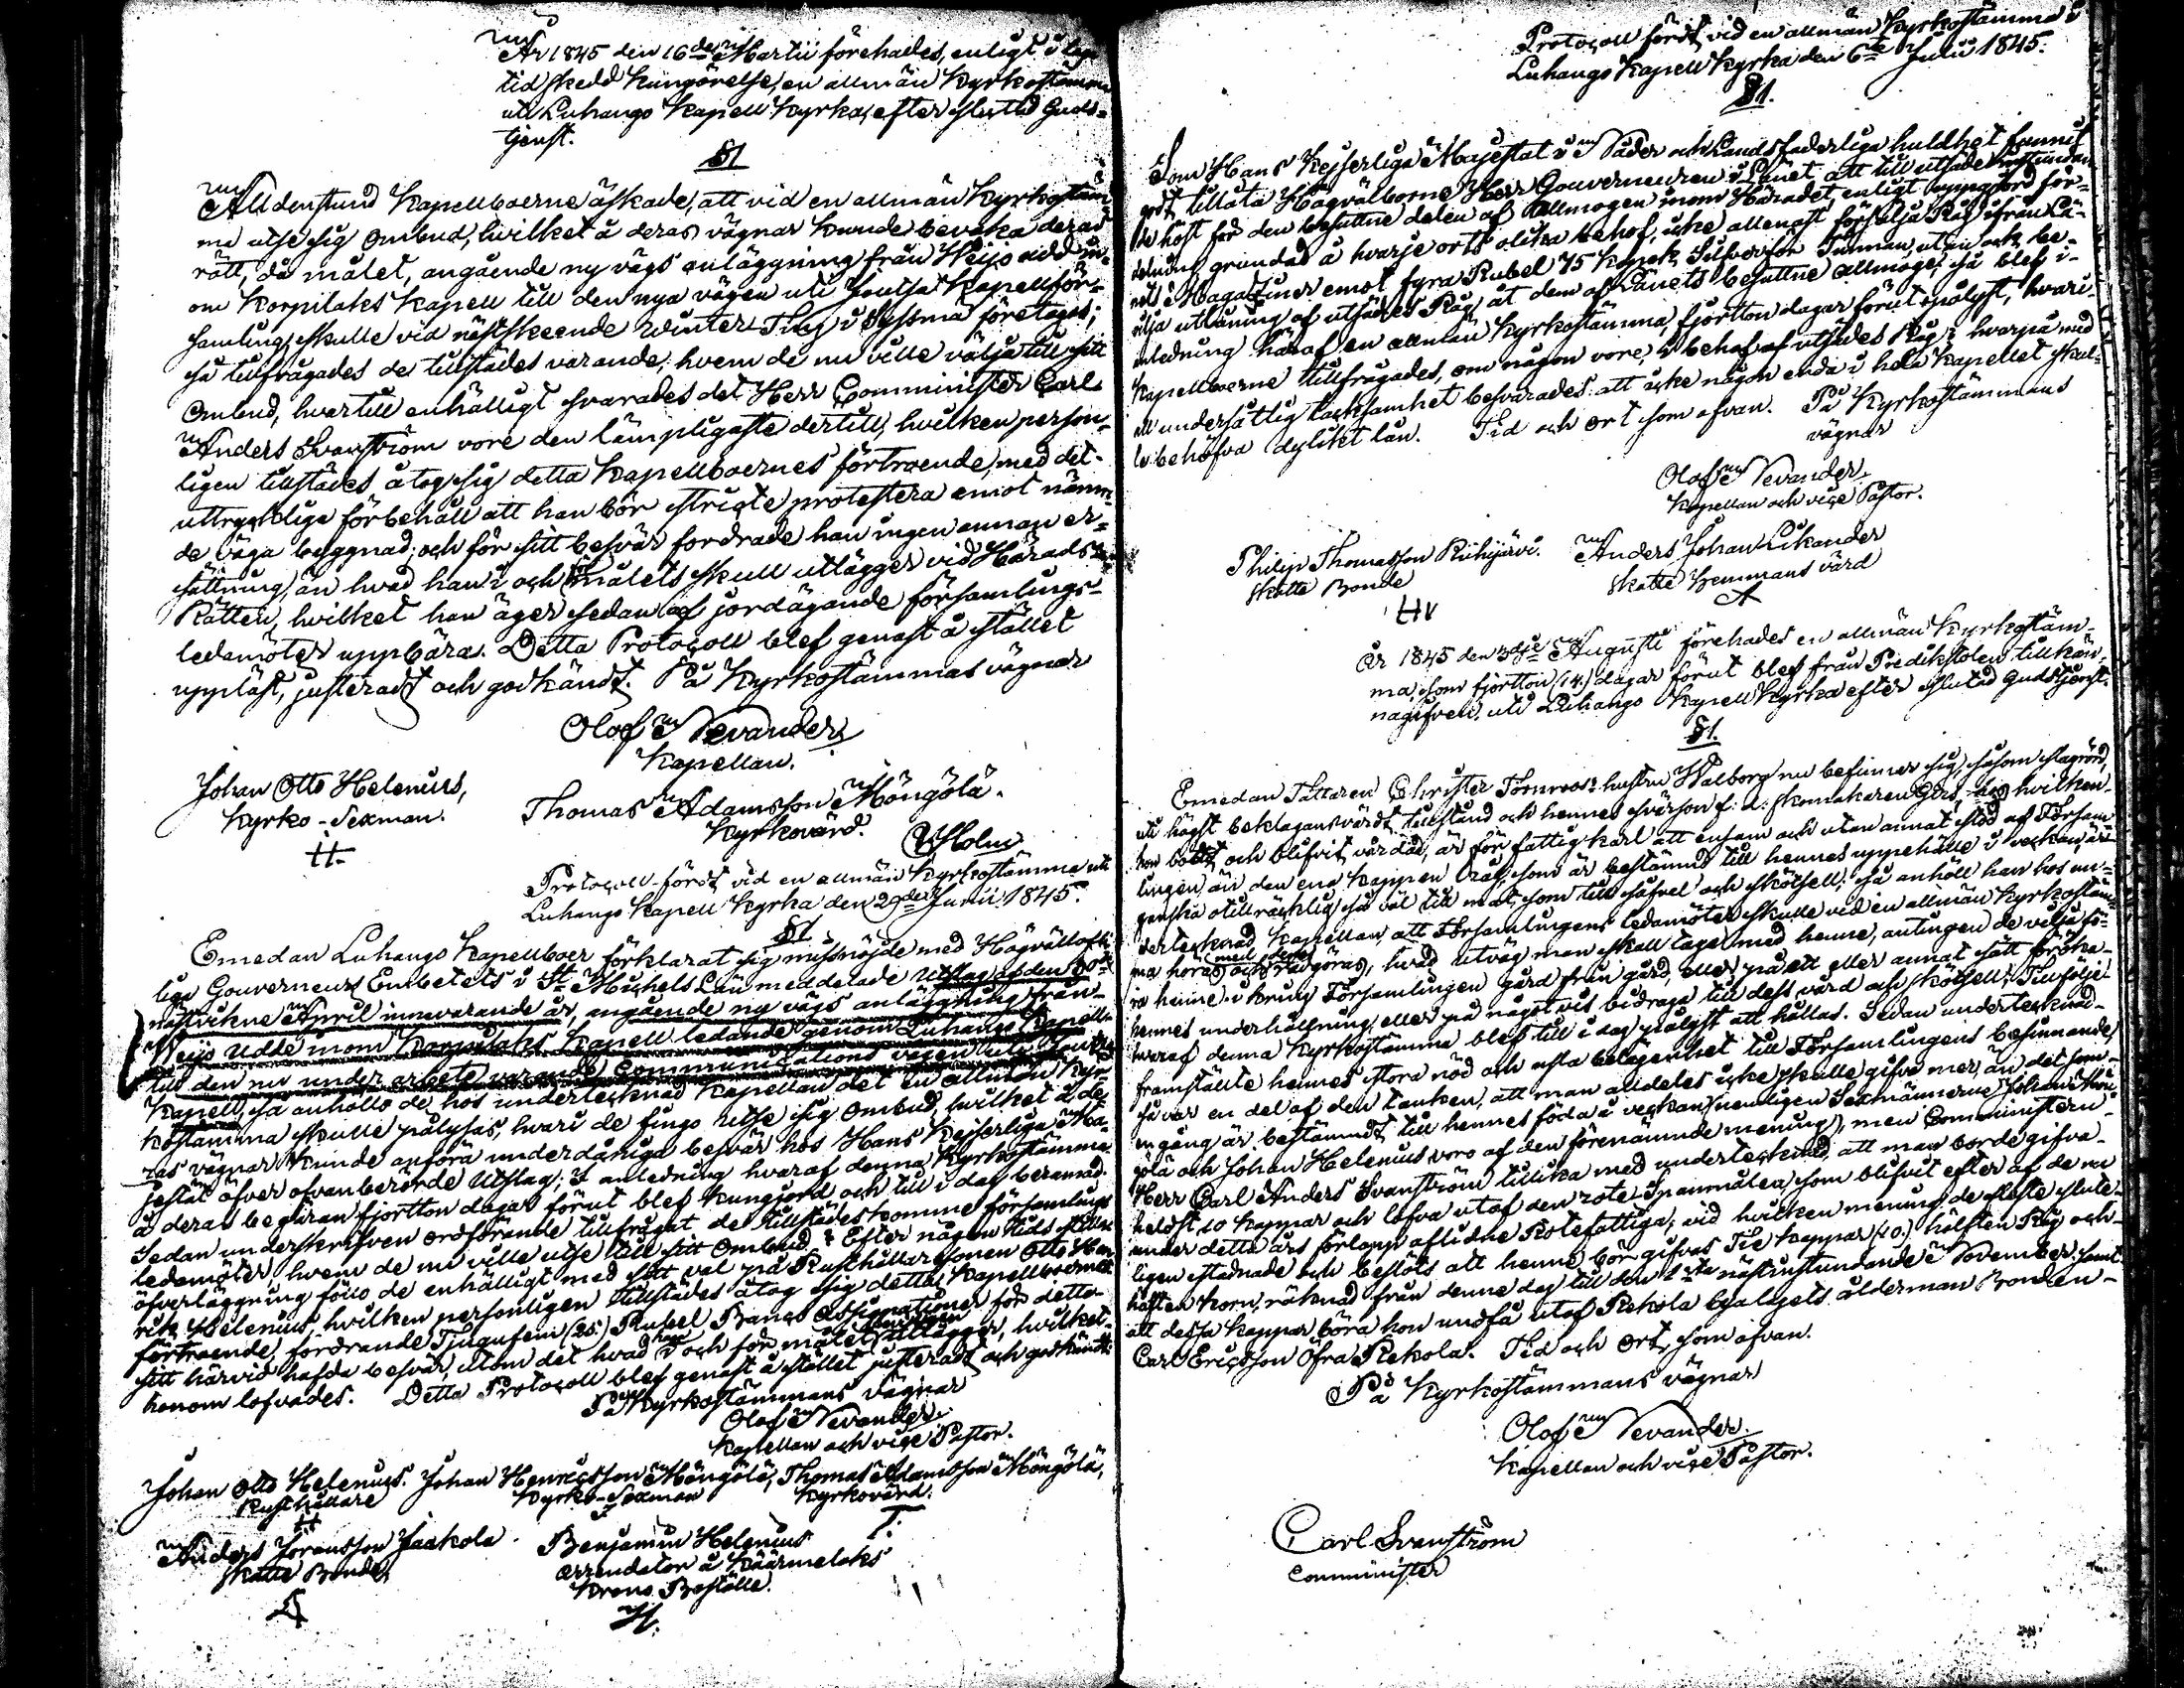 År 1845 den 16de Martii förehades, enligt i laga
tid skedd kungörelse, en allmän Kyrkostämma
uti Luhango Kapell Kyrka, efter slutad Guds-
tjenst.
§1
Alldenstund Kapellboerne äskade, att vid en allmän Kyrkostäm-
ma utse sig Ombud, hvilket å deras vägnar kunde bevaka deras
rätt, då målet, angående ny vägs anläggning från Heijo udd in-
om Korpilaks Kapell till den nya vägen uti Joutsa Kapellför-
samling, skulle vid nästskeende Winter Ting i Sysmä företagas;
så tillfrågades de tillstädes varande, hvem de nu ville välja till sitt
Ombud, hvartill enhälligt svarades det Herr Comminister Carl
Anders Svanström vore den lämpligaste dertill, hvilken person-
ligen tillstädes åtog sig detta Kapellboernes förtroende, med det
uttryckliga förbehåll att han bör stricte protestera emot nämn-
de väga byggnad; och för sitt besvär fordrade han ingen annan er-
sättning, än hvad han i och för målets skull utlägger vid Härads
Rätten, hvilket han äger sedan af jordägande församlings-
ledamöter uppbära. Detta Protocoll blef genast å stället
uppläst, justeradt och godkändt. På Kyrkostämmas vägnar
Olof Nevander
Kapellan.
Johan Otto Helenius,
Kyrko-Sexman.
H.
Thomas Adamsson Möngölä.
Kyrkovärd.
Holm
Protocoll fördt vid en allmän Kyrkostämma uti
Luhango Kapell Kyrka den 29de Junii 1845.
§1
Emedan Luhango Kapellboer förklarat sig missnöjde med Högvälloflige
lige Gouverneurs Embetets i St Michels Län meddelade Utslag af den
nästvikne April innevarande år, angående ny vägs anläggning från
Heijo Udde inom Korpilaks Kapell ledande genom Luhango Kapell
till den nu under arbete varande Communications vägen uti Joutsa
Kapell, så anhöllo de hos undertecknad Kapellan det en allmän Kyr-
kostämma skulle pålysas, hvari de fingo utse sig Ombud, hvilket å de-
ras vägnar kunde anföra underdåniga besvär hos Hans Kejserliga Ma-
jestät öfver ofvanberörde Utslag; I anledning hvaraf denna Kyrkostämma
å deras begäran fjortton dagar förut blef kungjord och till i dag beramad.
Sedan underskrifven ordförande tillfrågat de tillstädeskomne församlings
ledamöter, hvem de nu ville utse till sitt Ombud? Efter någon tids
öfverläggning föllo de enhälligt med sitt val på Rusthållare sonen Otto Hen-
rik Helenius, hvilken personligen tillstädes åtog sig detta Kapellboernes
förtroende, fordrande Tjugufem (25.) Rubel Banco Assignationer för detta
sitt härvid hafda besvär, utom det hvad han i och för målet utlägger, hvilket
honom lofvades. Detta Protocoll blef genast å stället justeradt och godkändt.
På Kyrkostämmans vägnar
Olof Nevander.
Kapellan och vice Pastor.
Johan Otto Helenius. Johan Henricsson Möngölä, Thomas Adamsson Möngölä,
Rusthållare Kyrko-Sexman Kyrkovärd.
H T.
Anders Jöransson Jaakola Benjamin Helenius
Skatte Bonde, Arrendator å Käärmelaks
Krono Boställe.
H.
Protocoll fördt vid en allmän Kyrkostämma i
Luhango Kapell Kyrka den 6te Julii 1845.
§1.
Som Hans Kejserliga Majestät i Nåder och Landsfaderliga huldhet funnit
godt tillåta Högvälborne Herr Gouverneuren i Länet, att till utsäde instundan-
de höst för den besuttne delen af Allmogen inom Häradet, enligt uppgjord för-
delning grundad å hvarje orts olika behof, icke allenast försälja Råg ifrån Lä-
nets Magaziner emot fyra Rubel 75 Kopek Silfver för Tunnan, utan ock be-
vilja utlåning af utsädes Råg åt dem af Länets besuttne allmoge; så blef i
anledning häraf en allmän Kyrkostämma fjortton dagar förut pålyst, hvari
Kapellboerne tillfrågades, om någon vore i behof af utsädes Råg; hvarpå med
all undersåtlig tacksamhet besvarades att icke någon enda i hela Kapellet skul-
le behöfva dylikt lån. Tid och ort som ofvan. På Kyrkostämmans
vägnar
Olof Nevander.
Kapellan och vice Pastor.
Philip Thomasson Riihijärvi. Anders Johan Likander
Skatte Bonde Skatte Hemmans värd
År 1845 den 3dje Augusti förehades en allmän Kyrkostäm-
ma, som fjortton (14.) dagar förut blef från Predikstolen tillkän-
nagifven, uti Luhango Kapell Kyrka efter slutad Gudstjenst.
§1.
Emedan Tattaren Christer Törnroos hustru Walborg nu befinner sig, såsom slagrörd,
uti högst beklagansvärdt tillstånd och hennes svärson f. d. skomakaren hos hvilken
hon bodt och blifvit vårdad, är för fattig karl att ensam och utan annat stöd af Försam-
lingen, än den ena kappen som är bestämnd till hennes uppehälle i veckan, är
ganska otillräcklig så väl till mat som till såfvel och skötsell, så anhöll han hos un-
dertecknad Kapellan, att Församlingens ledamöter skulle vid en allmän Kyrkostäm-
ma höras och rådgöras, hvad utväg man skall taga med henne, antingen de vilja fö-
ra henne i kring Församlingen gård från gård, eller på ett eller annat sätt försöka
hennes underhållning, eller på något vis bidraga till dess vård och skötsell; Tillfölje
hvaraf denna Kyrkostämma blef till i dag pålyst att hållas. Sedan undertecknad
framställte hennes stora nöd och usla belägenhet till Församlingens besinnande,
så var en del af den tanken, att man alldeles icke skulle gifva mer, än det som
en gång är bestämmdt till hennes föda i veckan (nemligen Sexmännerne Johan Mön-
gölä och Johan Helenius voro af den förenämnde mening), men Comministern
Herr Carl Anders Svanström tillika med undertecknad, att man borde gifva
heldst 10 kappar och lofva utaf den rote Spannmålen, som blifvit efter af de nu
under detta års förlopp aflidne Rotefattiga; vid hvilken mening de fleste slute-
ligen stadnade och beslöts att henne bör gifvas Tie kappar (10.) hälften Råg och
hälften Korn, räknad från denne dag till den 1sta nästinstundande November, samt
att dessa kappar böra hon undfå utaf Rekola byalagets ålderman Bonden
Carl Ericsson Öfra Rekola. Tid och Ort, som ofvan.
På Kyrkostämmans vägnar
Olof Nevander.
Kapellan och vice Pastor.
Carl Svanström
Comminister